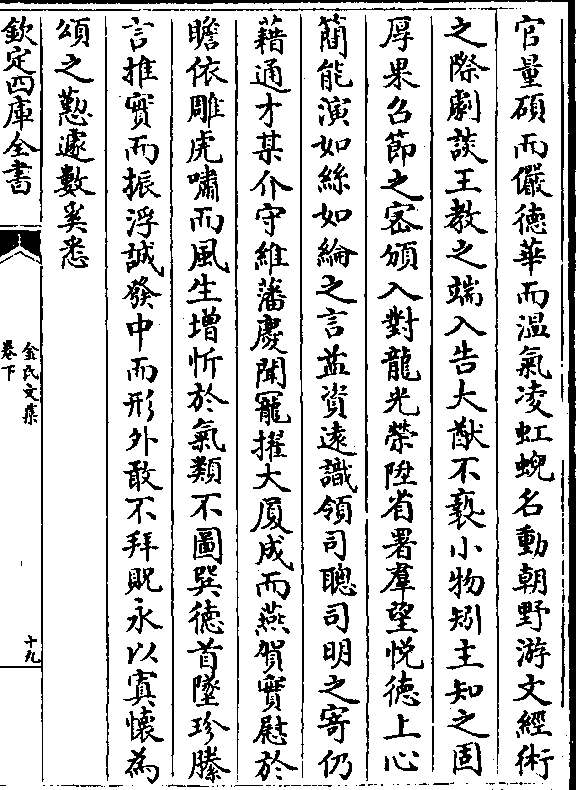 官量碩而儼德華而溫氣凌虹蜺名動朝野游文經術
之際劇談王教之端入告大猷不褻小物矧主知之固
厚果召節之宻頒入對龍光榮陞省署羣望悦德上心
簡能演如絲如綸之言益資遠識領司聰司明之寄仍
藉通才某介守維藩慶聞寵擢大厦成而燕賀實慰於
瞻依雕虎嘯而風生增忻於氣類不圖巽徳首墜珍縢
言推實而振浮誠發中而形外敢不拜貺永以寘懷為
頌之懃遽數奚悉
欽定四庫全書
金氏文集
卷下
十九